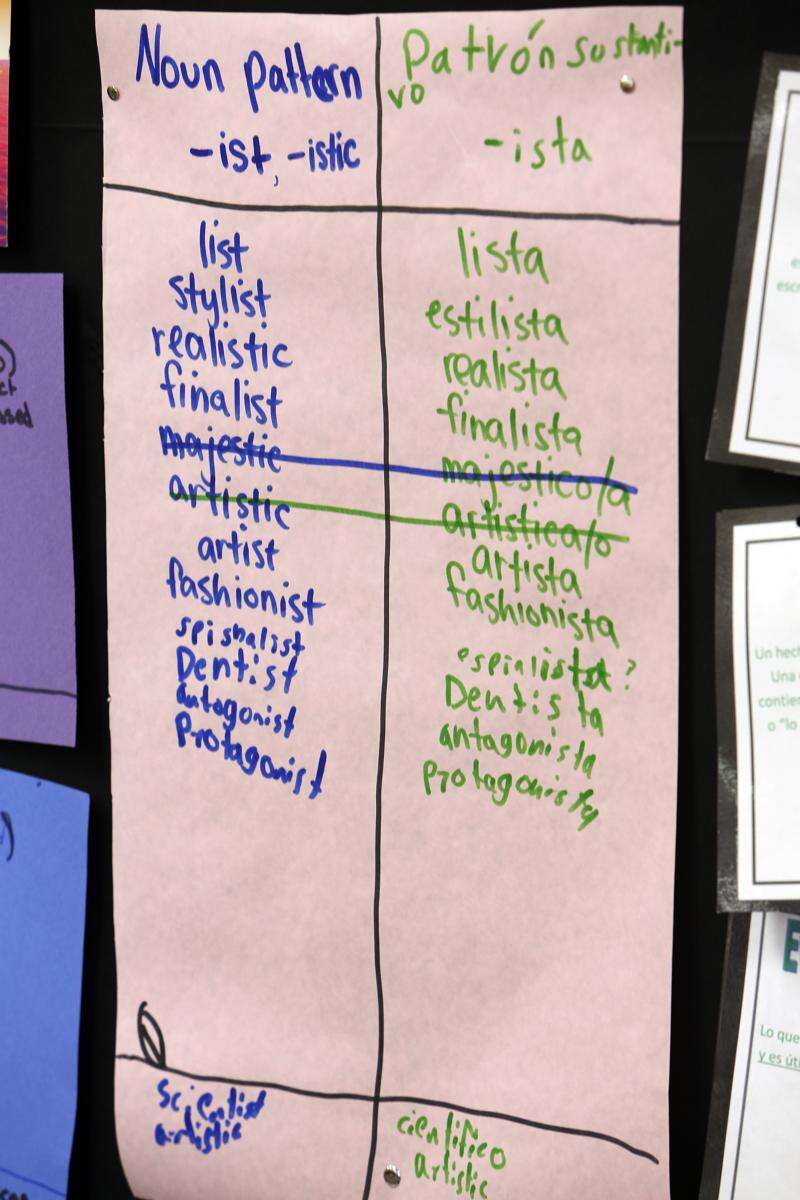 Noun pattern
-ist, -istic
list
stylist
realistic
finalist
majestic
artistic
artist
fashionist
spishalist
Dentist
antagonist
Protagonist
Scientist
artistic
Patrón sustanti-
vo
-ista
lista
estilista
realista
finalista
majestico/a
artistica/o
artista
fashionista
espialista?
Dentista
antagonista
Protagonista
científico
artistic
Un hech
Una
contien
o "lo
Lo que
y es úti
E